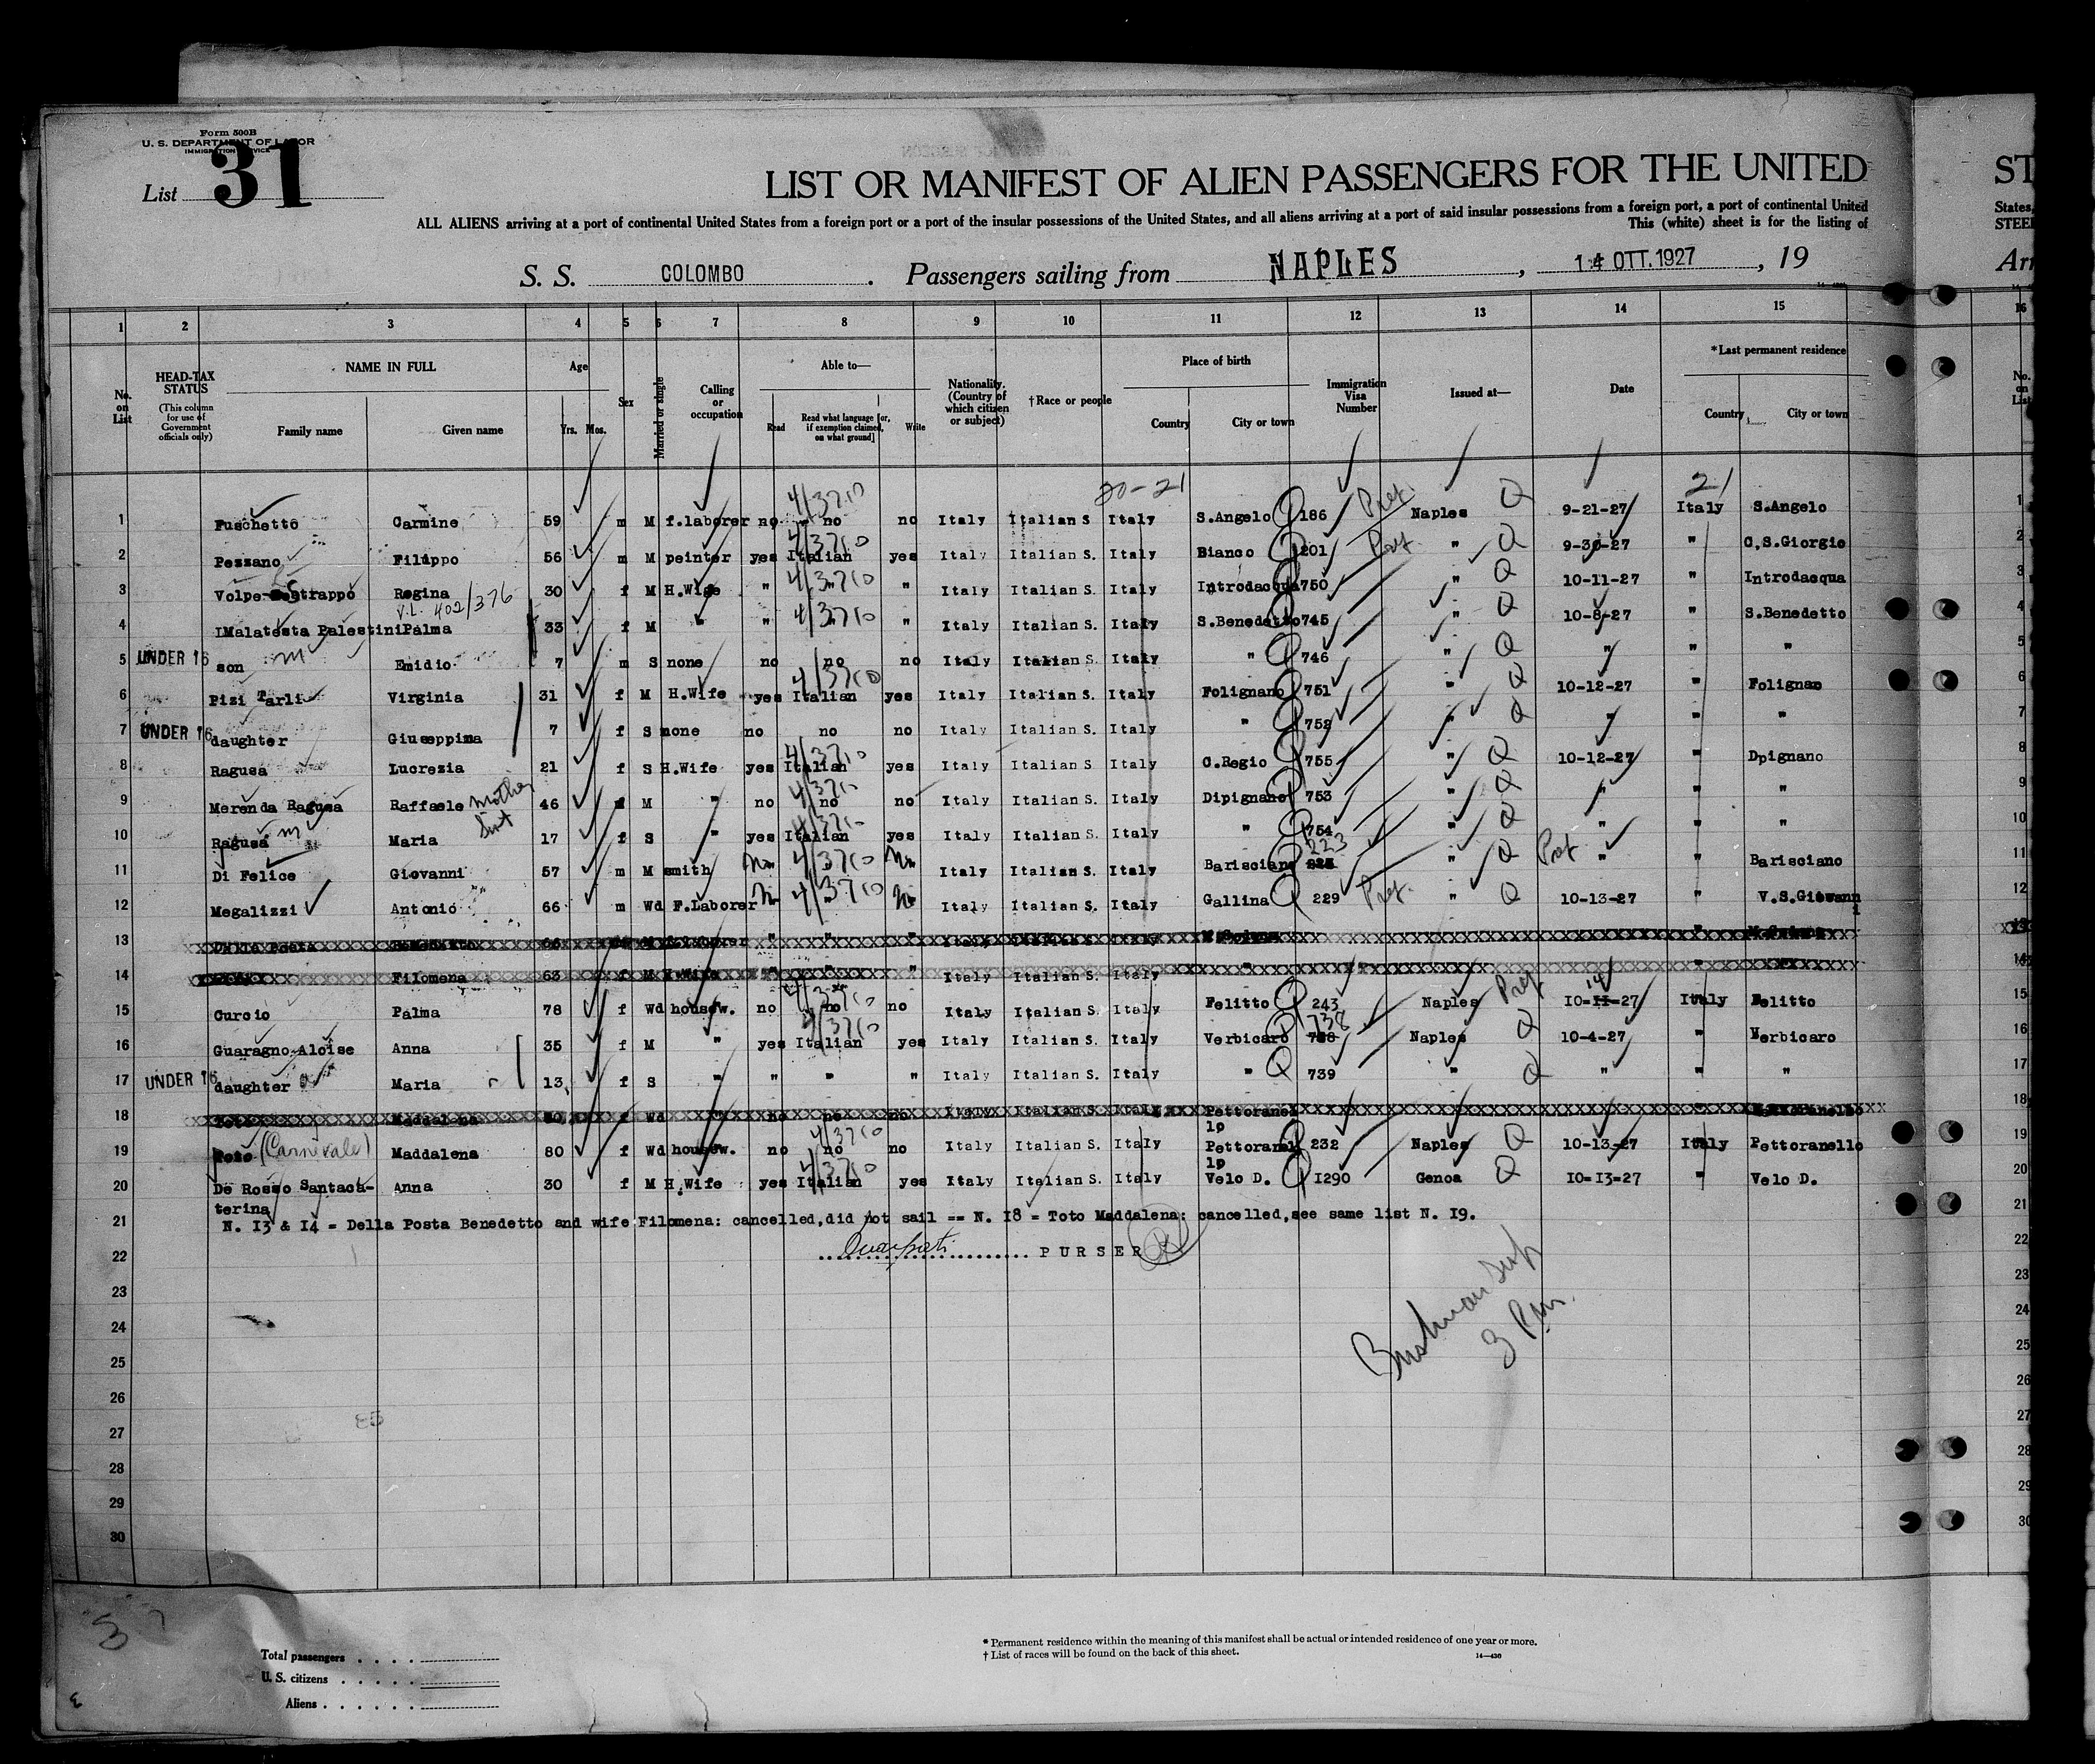 Form 500B
U. S. DEPARTMENT OF LABOR
IMMIGRATION SERVICE
List 31
LIST OR MANIFEST OF ALIEN PASSENGERS FOR THE UNITED
ST
ALL ALIENS arriving at a port of continental United States from a foreign port or a port of the insular possessions of the United States, and all aliens arriving at a port of said insular possessions from a foreign port, a port of continental United
States,
This (white) sheet is for the listing of
STEE
S. S. COLOMBO. Passengers sailing from NAPLES, 14 OTT. 1927, 19
Arr
1 2 3 4 5 6 7 8 9 10 11 12 13 14 15 16
No. on List
HEAD-TAX STATUS
(This column for use of Government officials only)
NAME IN FULL
Family name Given name
Age
Yrs. Mos.
Sex
Married or single
Calling or occupation
Able to—
Read Read what language [or, if exemption claimed, on what ground] Write
Nationality. (Country of which citizen or subject)
†Race or people
Place of birth
Country City or town
Immigration Visa Number
Issued at—
Date
*Last permanent residence
Country City or town
No. on List
20-21 21
1 Fuschetto Carmine 59 m M f.laborer no no no Italy Italian S Italy S.Angelo 186 Pref. Naples Q 9-21-27 Italy S.Angelo 1
2 Pezzano Filippo 56 m M peinter yes Italian yes Italy Italian S. Italy Bianco 201 Pref " Q 9-30-27 " C.S.Giorgio 2
3 Volpe- strappo Regina 30 f M H.Wife " " " Italy Italian S. Italy Introdacqua 750 " Q 10-11-27 " Introdacqua 3
V.L. 402/376
4 IMalatesta Palestini Palma 33 f M " " " " Italy Italian S. Italy S.Benedetto 745 " Q 10-8-27 " S.Benedetto 4
5 UNDER 16 son m Emidio 7 m S none no no no Italy Italian S. Italy " 746 " Q " " " 5
6 Pizi Tarli Virginia 31 f M H.Wife yes Italian yes Italy Italian S. Italy Folignano 751 " Q 10-12-27 " Folignao 6
7 UNDER 16 daughter Giuseppina 7 f S none no no no Italy Italian S. Italy " 752 " Q " " " 7
8 Ragusa Lucrezia 21 f S H.Wife yes Italian yes Italy Italian S. Italy C.Regio 755 " Q 10-12-27 " Dpignano 8
9 Merenda Ragusa Raffaele mother 46 M " no no no Italy Italian S. Italy Dipignano 753 " Q " " " 9
10 Ragusa m Maria Sist 17 f S " yes Italian yes Italy Italian S. Italy " 754 " Q " " " 10
11 Di Felice Giovanni 57 m M smith No No Italy Italian S. Italy Barisciano 223 " Q Pref " " Barisciano 11
12 Megalizzi Antonio 66 m Wd F.Laborer No No Italy Italian S. Italy Gallina 229 Pref. " Q 10-13-27 " V.S.Giovanni 12
13 Della Posta Benedetto 66 M f.laborer " " " Italy Italian S. Italy " 13
14 Filomena 63 f M H.Wife " " " Italy Italian S. Italy " " 14
15 Curcio Palma 78 f Wd housew. no no no Italy Italian S. Italy Felitto 243 Naples Pref 10-II-27 14 Italy Felitto 15
16 Guaragno-Aloise Anna 35 f M " yes Italian yes Italy Italian S. Italy Verbicaro 738 Naples Q 10-4-27 " Verbicaro 16
17 UNDER 16 daughter Maria 13 f S " " " " Italy Italian S. Italy " 739 " Q " " " 17
18 Toto Maddalena 80 f Wd " no no no Italy Italian S. Italy Pettoranel lo " " Pettoranello 18
19 Toto (Carnivale) Maddalena 80 f Wd housew. no no no Italy Italian S. Italy Pettoranel lo 232 Naples Q 10-13-27 Italy Pettoranello 19
20 De Rosso Santaca- terina Anna 30 f M H.Wife yes Italian yes Italy Italian S. Italy Velo D. I290 Genoa Q I0-I3-27 " Velo D. 20
21 N. I3 & I4 = Della Posta Benedetto and wife Filomena: cancelled,did not sail == N. I8 = Toto Maddalena: cancelled,see same list N. I9. 21
22 PURSER 22
23 23
24 24
25 25
26 26
27 27
28 28
29 29
30 30
3 Pm.
Total passengers . . . .
U. S. citizens . . . . .
Aliens . . . . . .
* Permanent residence within the meaning of this manifest shall be actual or intended residence of one year or more.
† List of races will be found on the back of this sheet.
14—430